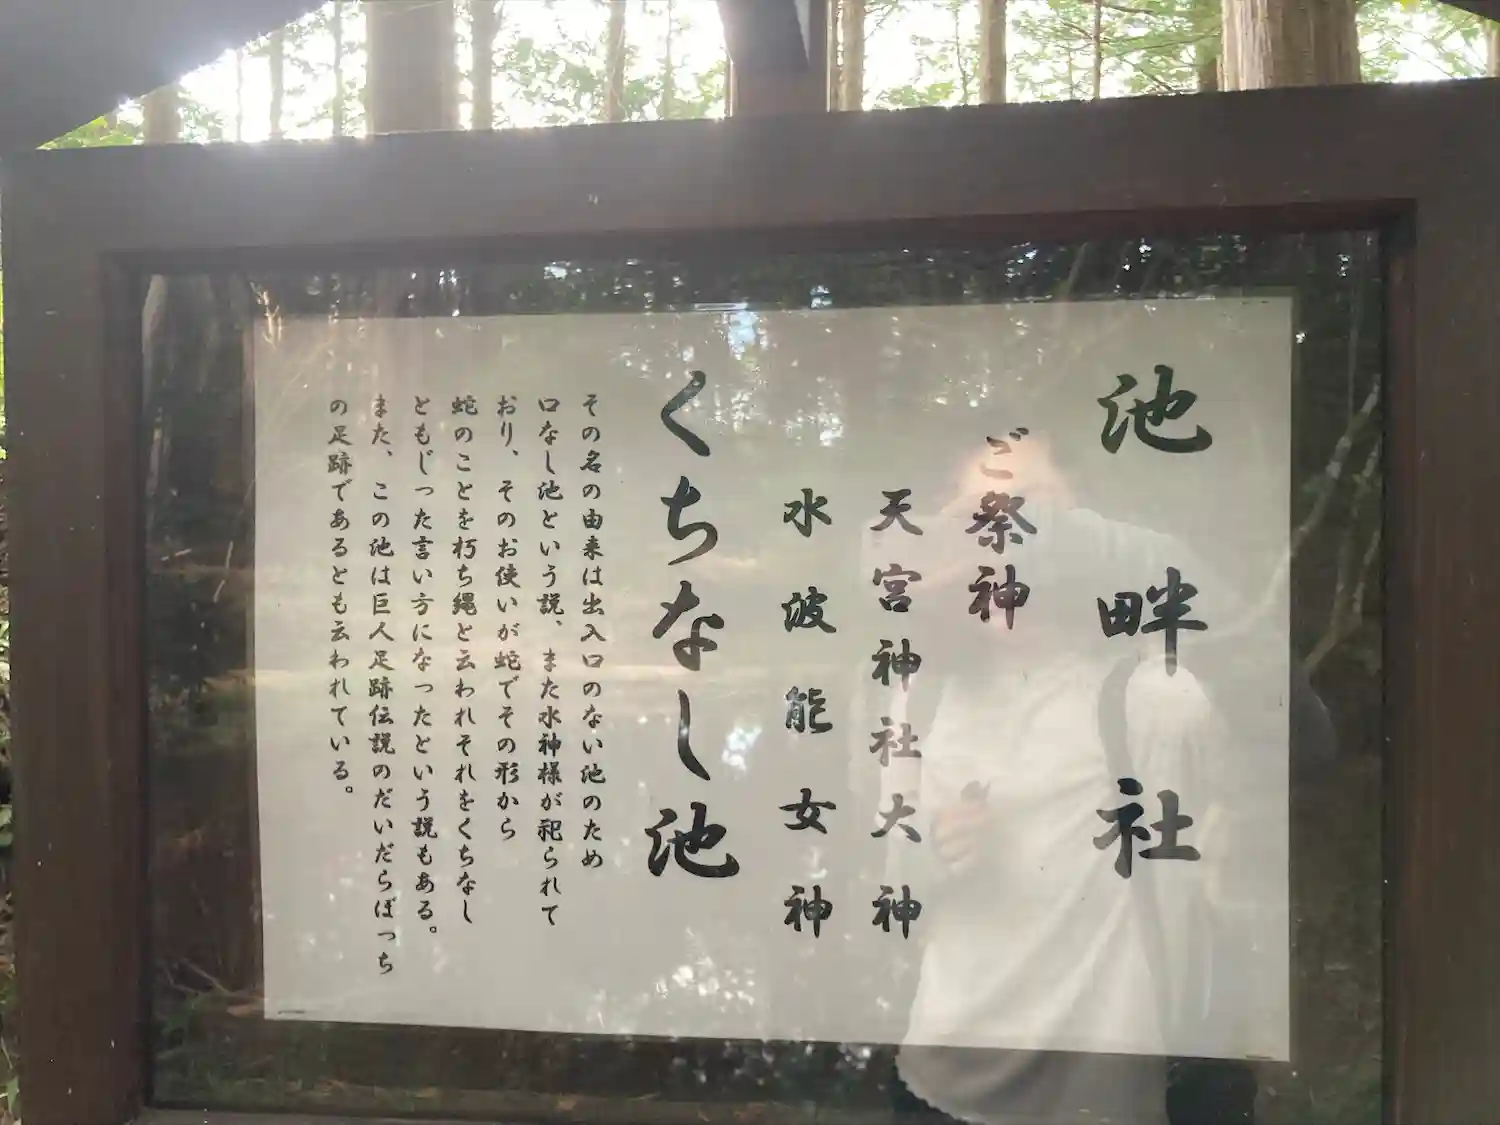 池畔社
ご祭神
天宮神社大神
水波能女神
くちなし池
その名の由来は出入口のない池のため
口なし池という説、また水神様が祀られて
おり、そのお使いが蛇でその形から
蛇のことを朽ち縄と云われそれをくちなし
ともじった言い方になったという説もある。
また、この池は巨人足跡伝説のだいだらぼっち
の足跡であるとも云われている。